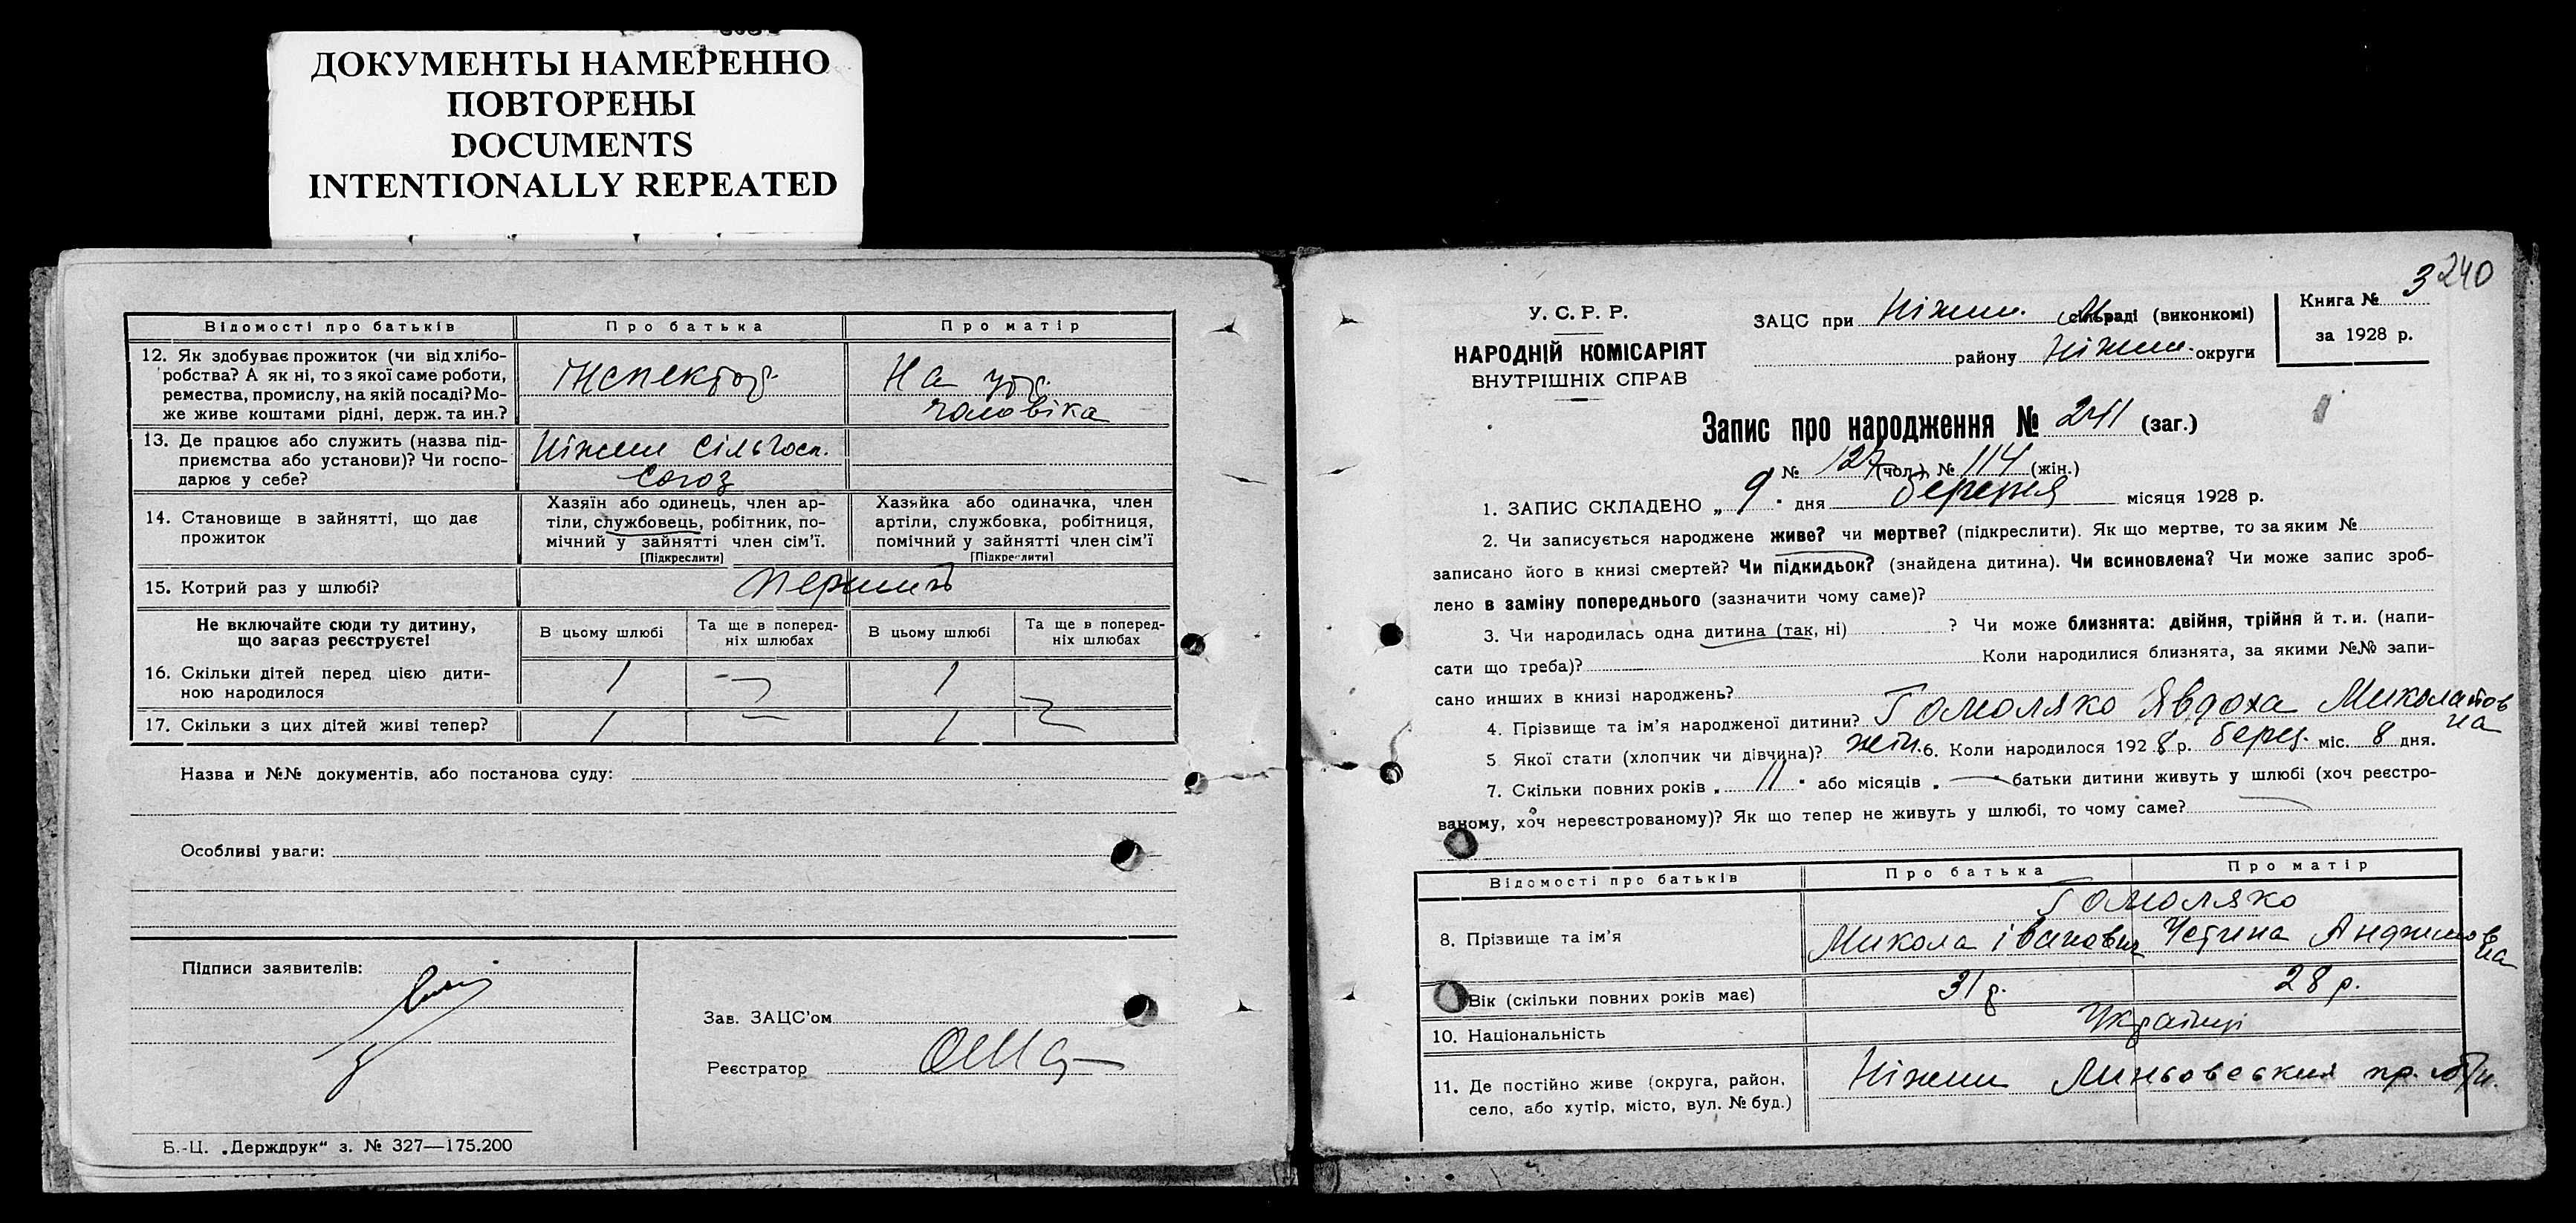 ДОКУМЕНТЫ НАМЕРЕННО
ПОВТОРЕНЫ
DOCUMENTS
INTENTIONALLY REPEATED
Відомості про батьків Про батька Про матір
12. Як здобуває прожиток (чи від хлібо-
робства? А як ні, то з якої саме роботи,
ремества, промислу, на якій посаді? Мо-
же живе коштами рідні, держ. та ин.?
Інспектор На утр.
чоловіка
13. Де працює або служить (назва під-
приємства або установи)? Чи госпо-
дарює у себе?
Ніжин Сільгосп.
Союз
14. Становище в зайнятті, що дає
прожиток
Хазяїн або одинець, член ар-
тіли, службовець, робітник, по-
мічний у зайнятті член сім'ї.
[Підкреслити]
Хазяйка або одиначка, член
артіли, службовка, робітниця,
помічний у зайнятті член сім'ї
[Підкреслити]
15. Котрий раз у шлюбі?
Не включайте сюди ту дитину,
що зараз реєструєте!
В цьому шлюбі Та ще в поперед-
ніх шлюбах В цьому шлюбі Та ще в поперед-
ніх шлюбах
16. Скільки дітей перед цією дити-
ною народилося 1 - 1
17. Скільки з цих дітей живі тепер? 1 - 1
Назва и №№ документів, або постанова суду:
Особливі уваги:
Підписи заявителів:
Зав. ЗАЦС'ом
Реєстратор
Б.-Ц. „Держдрук“ з. № 327—175.200
240
У. С. Р. Р.
НАРОДНІЙ КОМІСАРІЯТ
ВНУТРІШНІХ СПРАВ
ЗАЦС при Ніжин. М сільраді (виконкомі)
району Ніжин. округи
Книга № 3
за 1928 р.
Запис про народження № 241 (заг.)
№ 127 (чол.), № 114 (жін.)
1. ЗАПИС СКЛАДЕНО „ 9 “ дня березня місяця 1928 р.
2. Чи записується народжене живе? чи мертве? (підкреслити). Як що мертве, то за яким №
записано його в книзі смертей? Чи підкидьок? (знайдена дитина). Чи всиновлена? Чи може запис зроб-
лено в заміну попереднього (зазначити чому саме)?
3. Чи народилась одна дитина (так, ні) ? Чи може близнята: двійня, трійня й т. и. (напи-
сати що треба)? Коли народилися близнята, за якими №№ запи-
сано инших в книзі народжень?
4. Прізвище та ім'я народженої дитини? Гомоляко Явдоха Миколаїв
на
5. Якої стати (хлопчик чи дівчина)? жін. 6. Коли народилося 1928 р. берез. міс. 8 дня.
7. Скільки повних років „ 11 “ або місяців „ — “ батьки дитини живуть у шлюбі (хоч реєстро-
ваному, хоч нереєстрованому)? Як що тепер не живуть у шлюбі, то чому саме?
Відомості про батьків Про батька Про матір
Гомоляко
8. Прізвище та ім'я Микола Іванович
9. Вік (скільки повних років має) 31 р. 28 р.
10. Національність Українці
11. Де постійно живе (округа, район,
село, або хутір, місто, вул. № буд.)
Ніжин